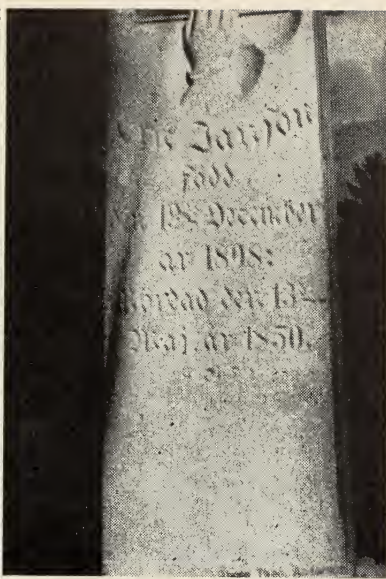 Eric Janson
född
den 19de December
år 1808:
Mördad den 13de
Maj. år 1850.